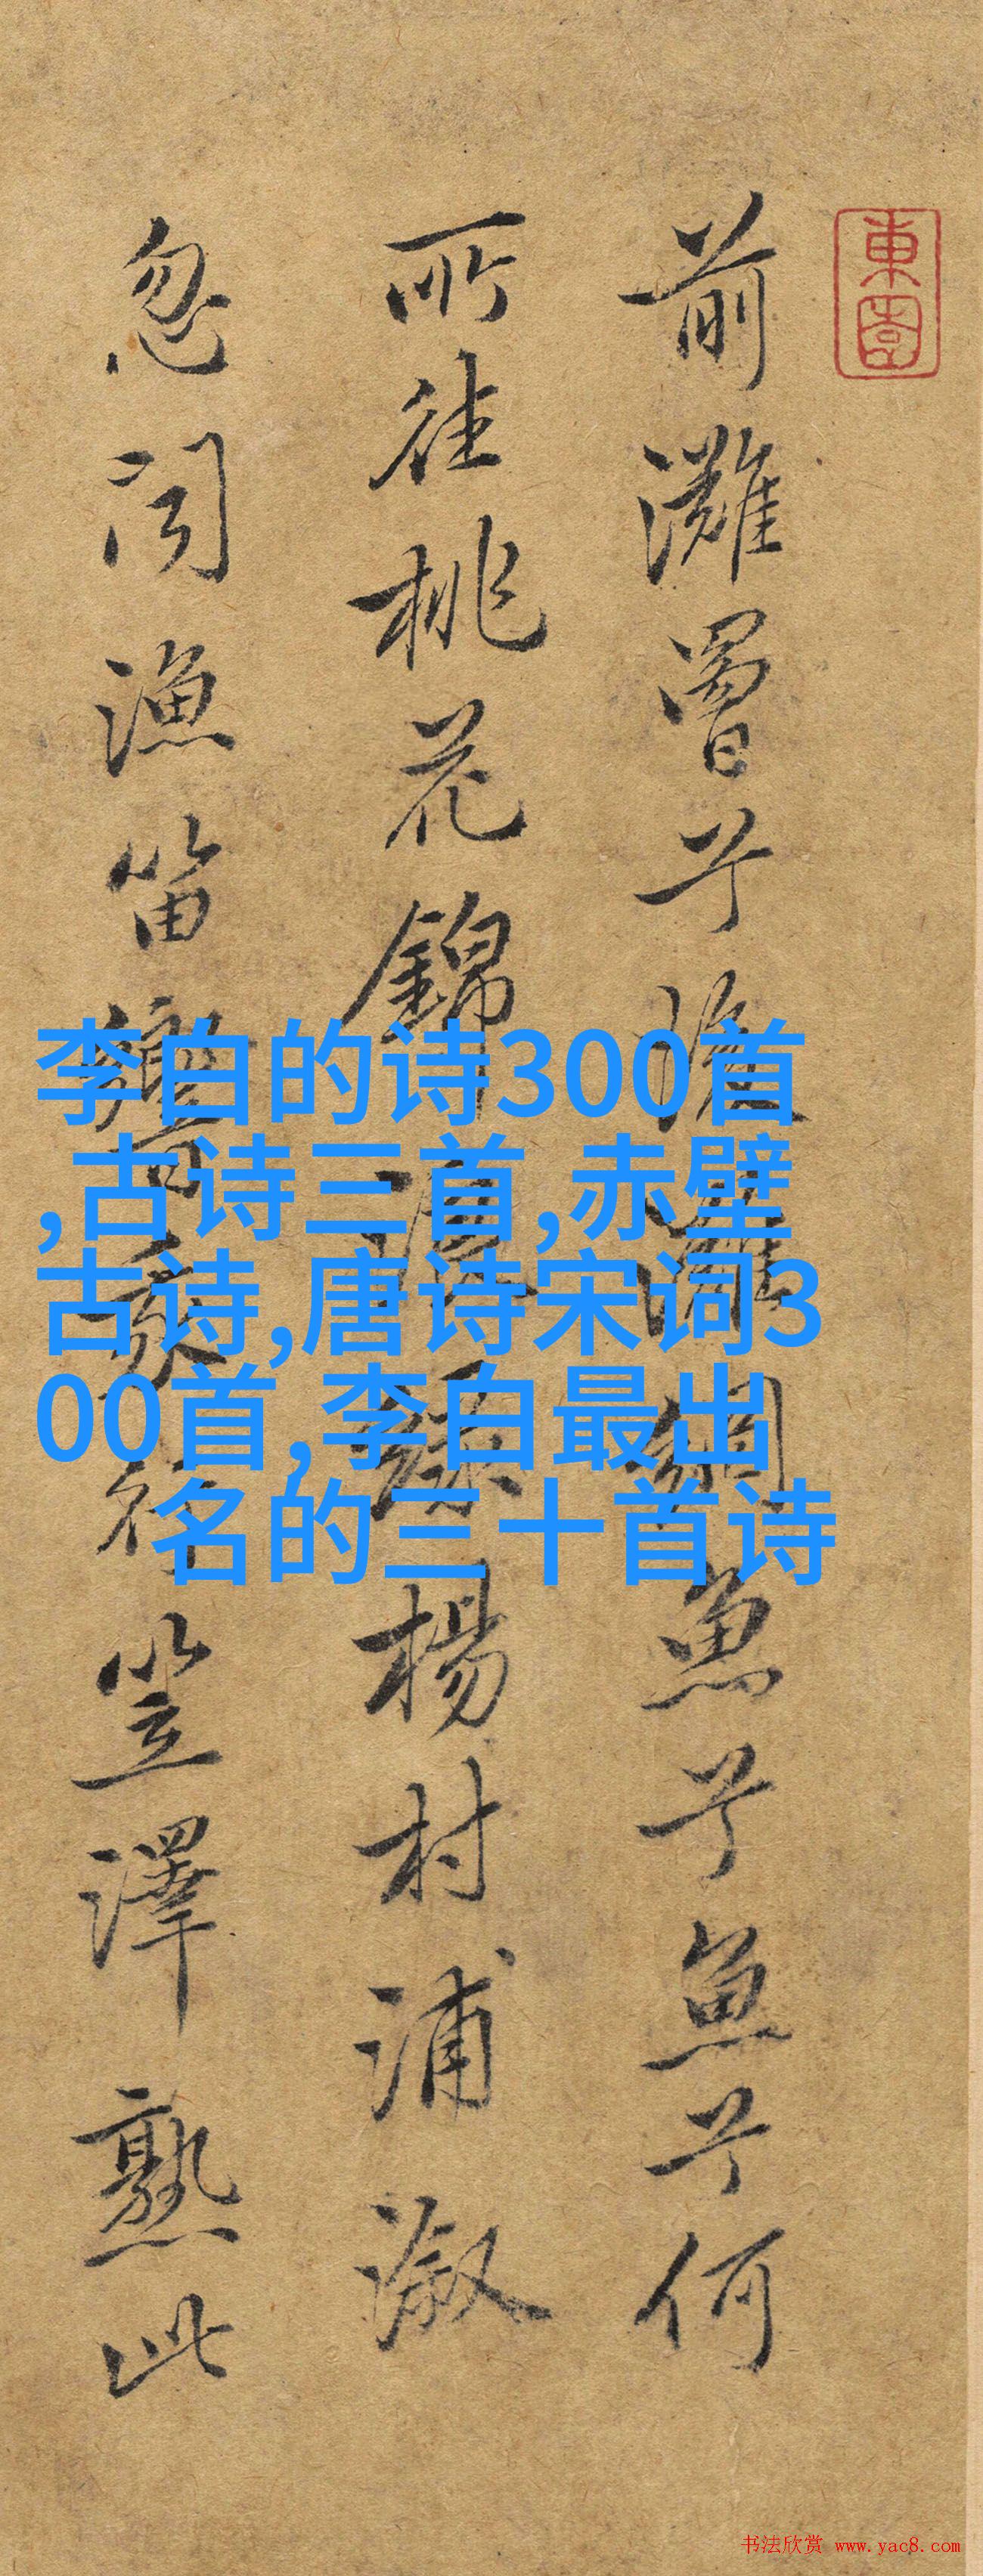 東
前灘罾兮後灘網魚兮魚兮何
所往桃花錦浪綠楊村浦溆
忽聞漁笛響笠澤熟此
李白的诗300首
,古诗三首,赤壁
古诗,唐诗宋词3
00首,李白最出
名的三十首诗
书法欣赏 www.yac8.com